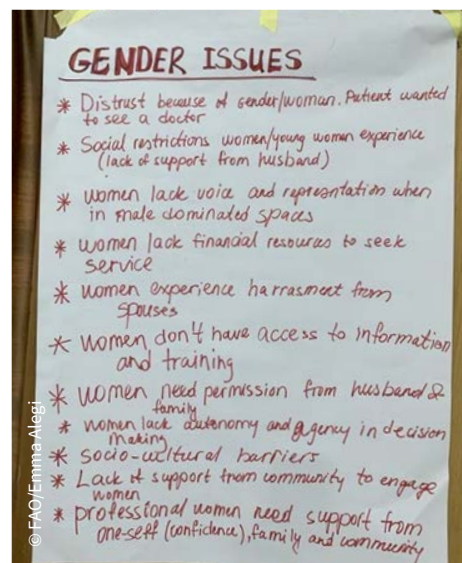 GENDER ISSUES
* Distrust because of gender/woman. Patient wanted
to see a doctor
* Social restrictions women/young women experience
(lack of support from husband)
* women lack voice and representation when
in male dominated spaces
* women lack financial resources to seek
service
* women experience harrasment from
spouses
* women don't have access to information
and training
* women need permission from husband &
family
* women lack autonomy and agency in decision
making
* socio-cultural barriers
* Lack of support from community to engage
women
* professional women need support from
one-self (confidence), family and community
© FAO/Emma Alegi